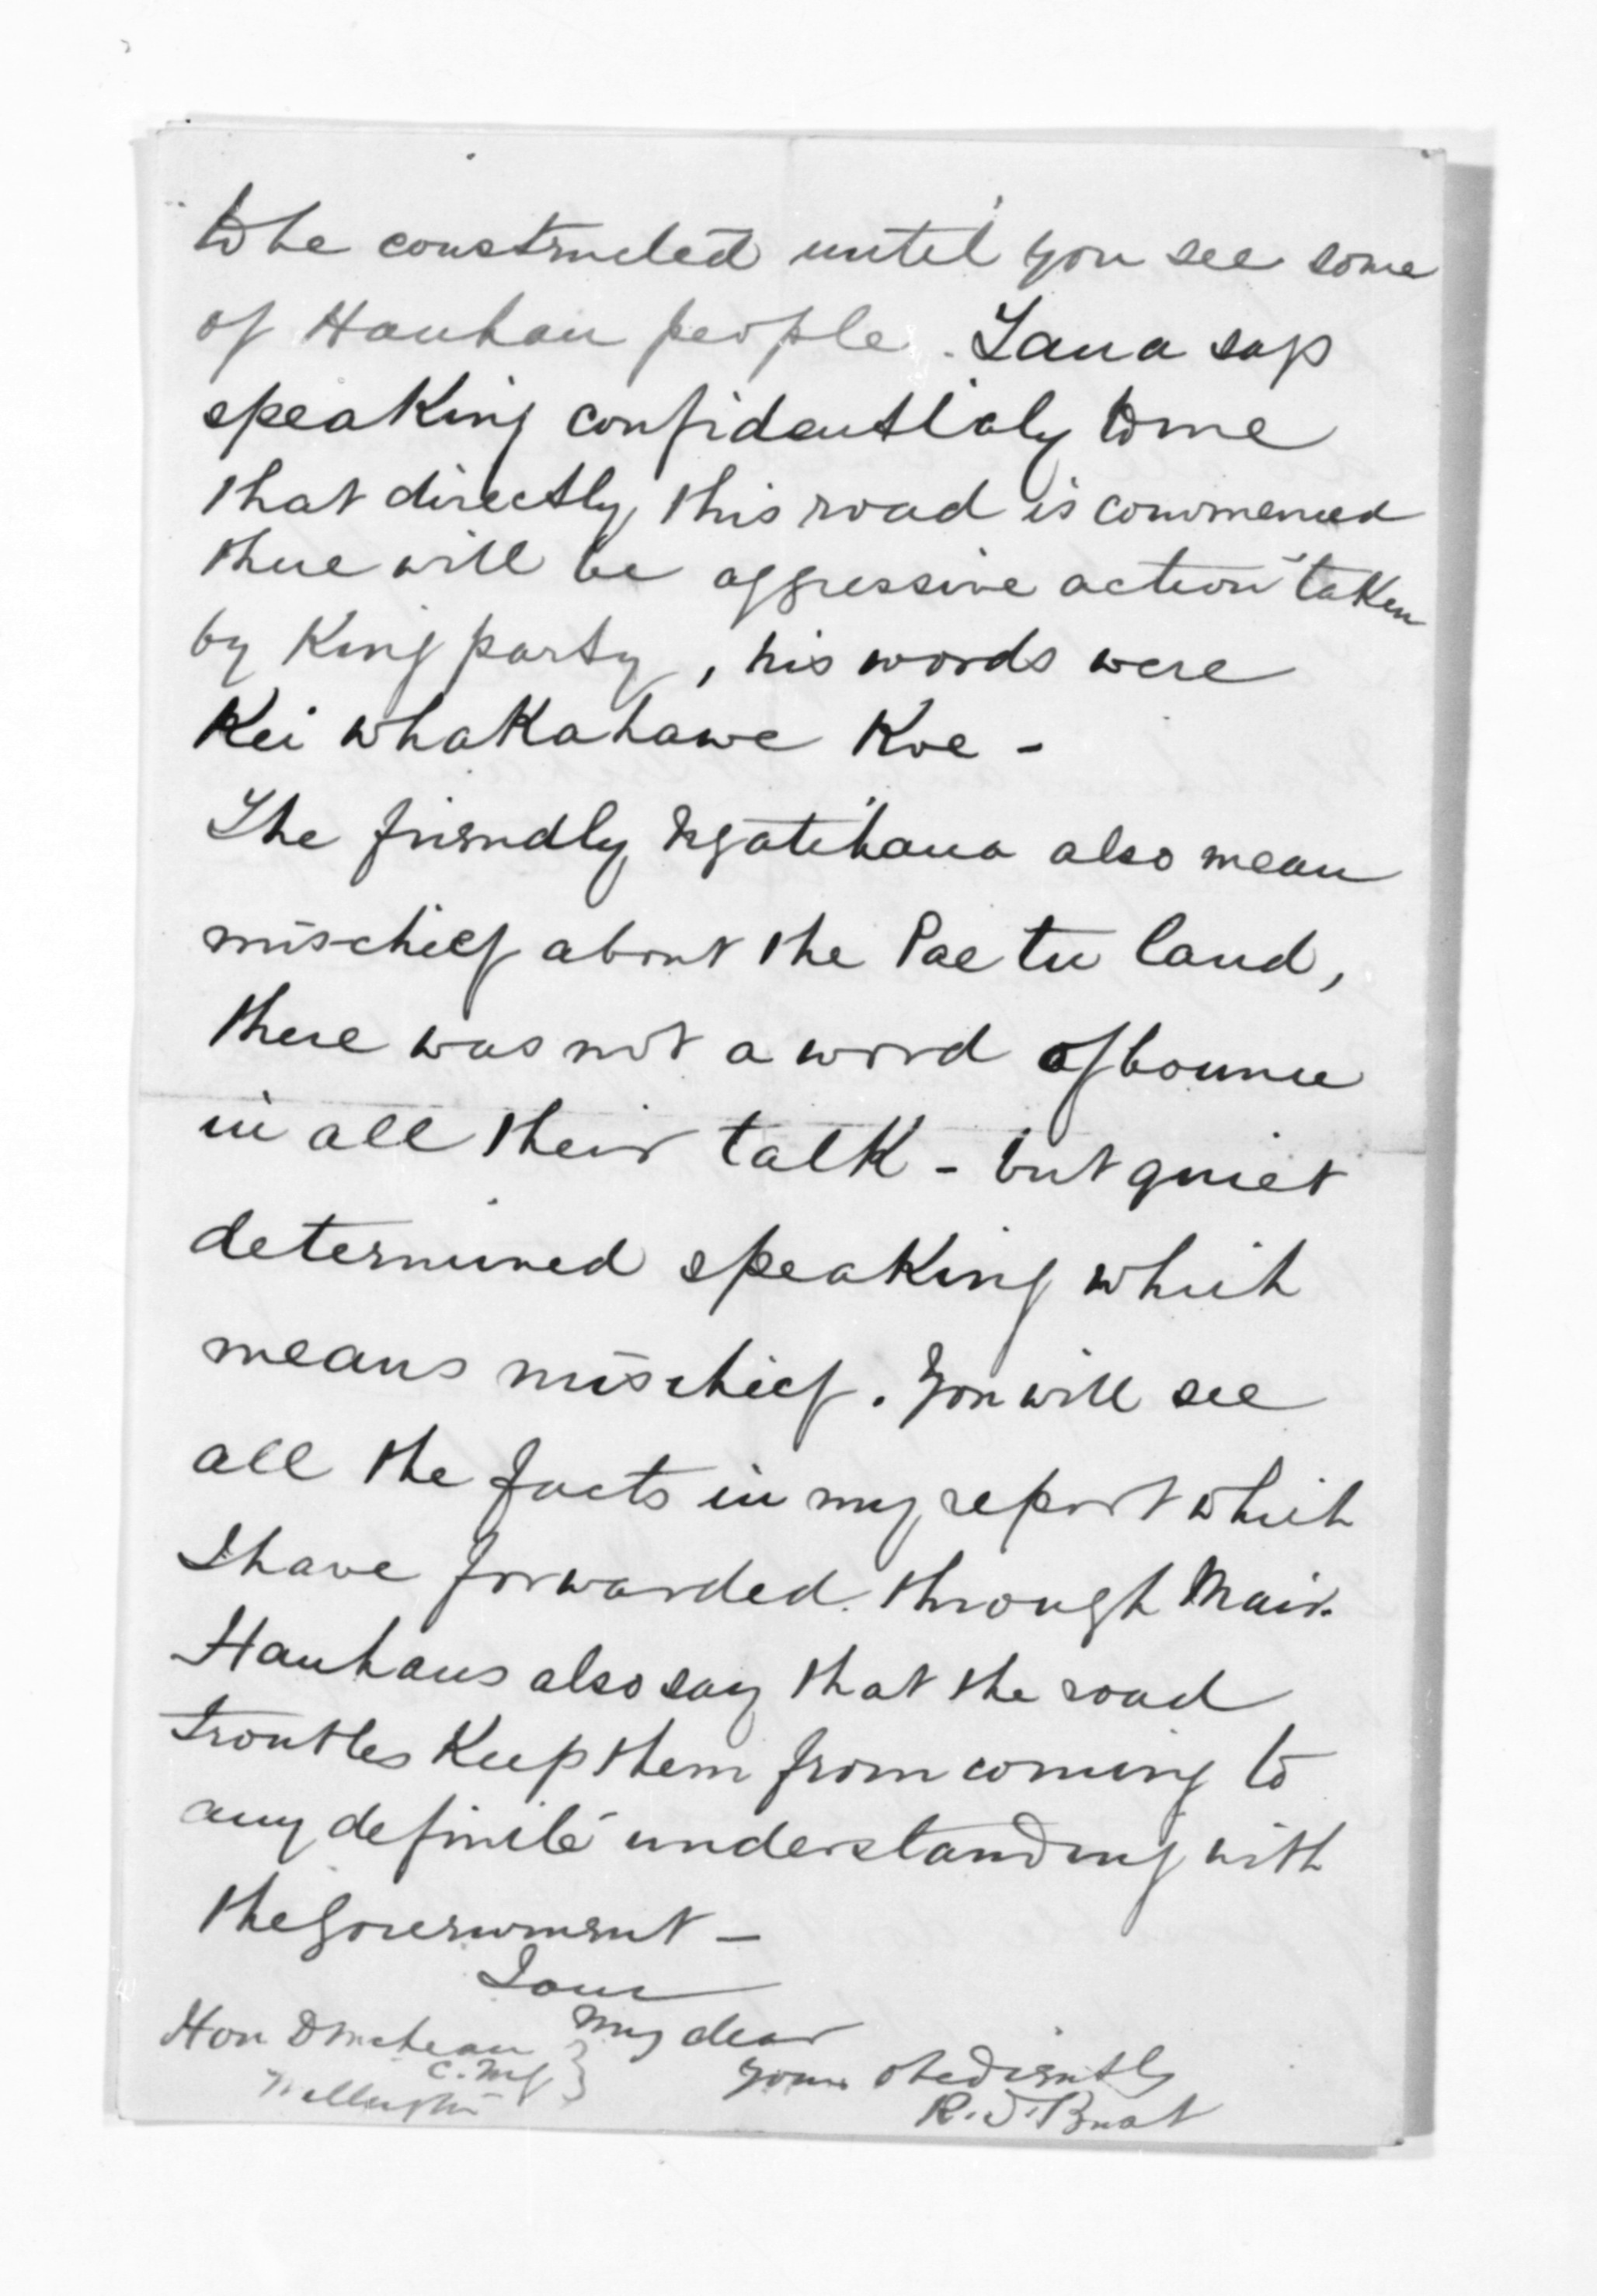 to be constructed until you see some
of Hauhau people. Tana says
speaking confidentialy to me
that directly this road is commenced
there will be aggressive action taken
by King party, his words were
Kei whakahawe Koe -
The friendly Ngatihaua also mean
mischief about the Pae tu land,
there was not a word of bounce
in all their talk - but quiet
determined speaking which
means mischief. You will see
all the facts in my report which
I have forwarded through Mair.
Hauhaus also say that the road
troubles Keep them from coming to
any definite understanding with
the Government -
I am
My dear
Hon D McLean
C.M.G
Wellington
Yours obediently
R.S. Bush